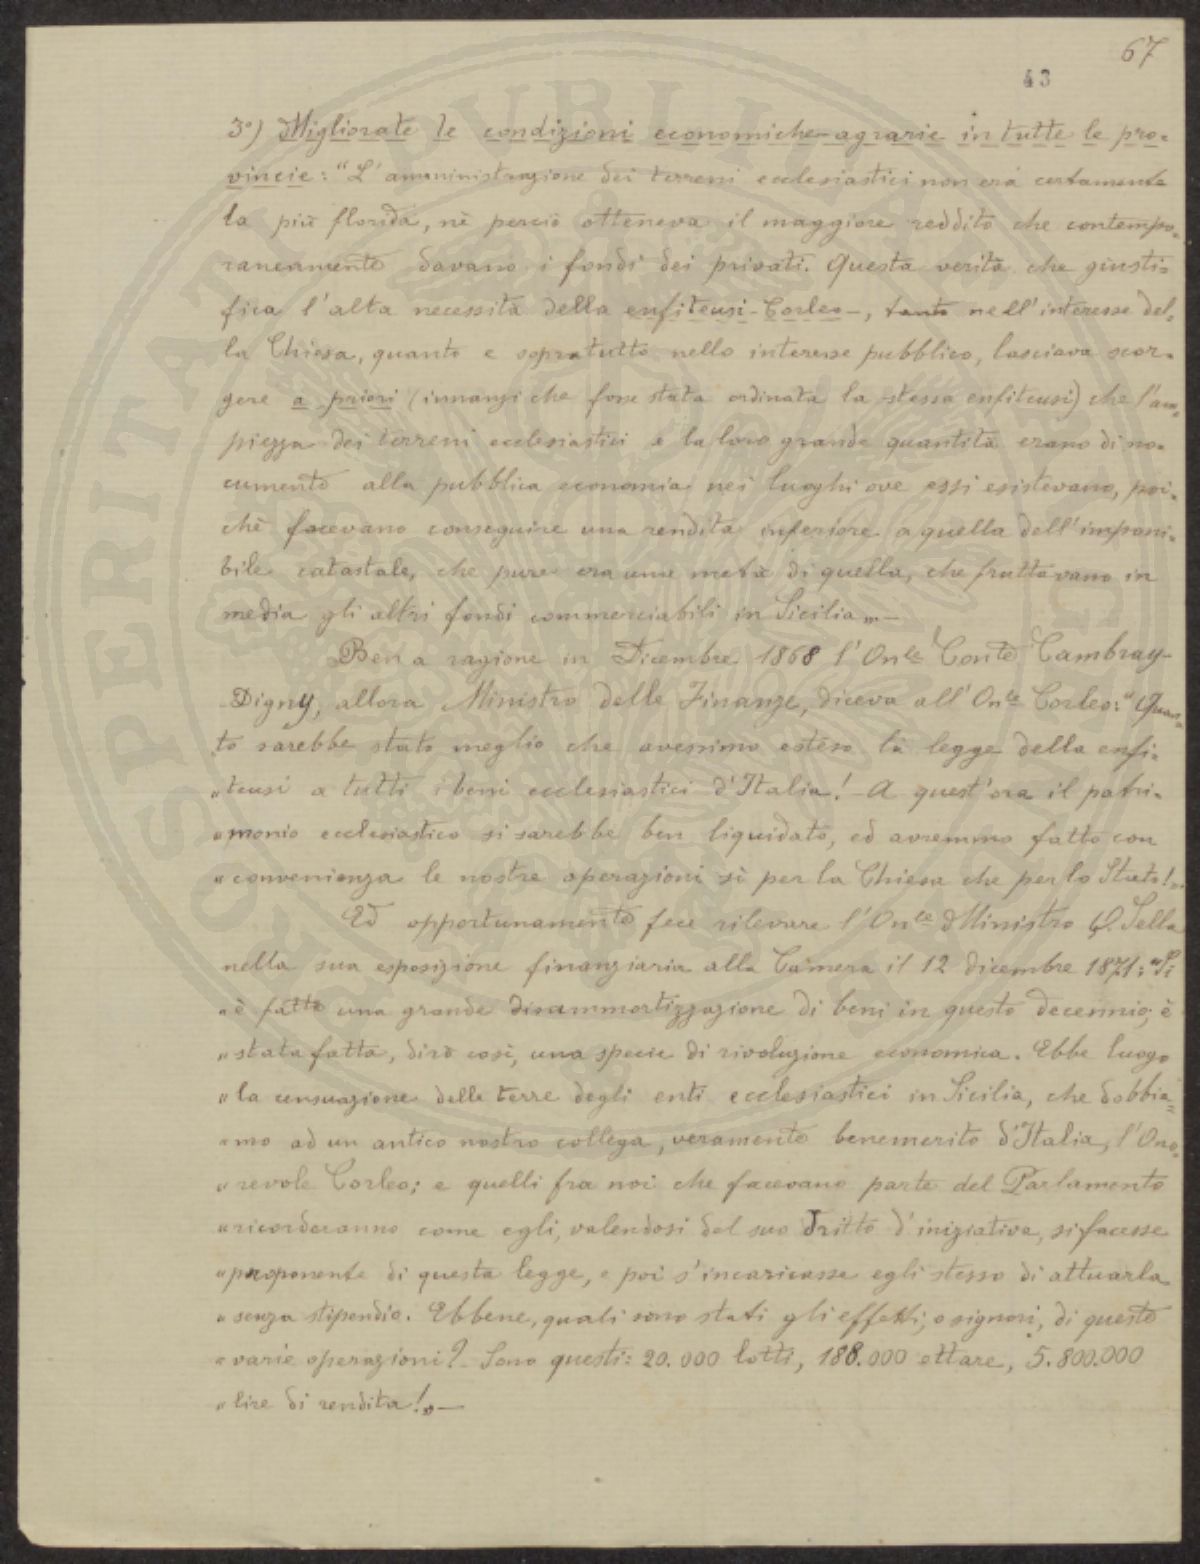 67
43
3°) Migliorate le condizioni economiche-agrarie in tutte le pro=
vincie: "L'amministrazione dei terreni ecclesiastici non era certamente
la più florida, nè perciò otteneva il maggiore reddito che contempo=
raneamente davano i fondi dei privati. Questa verità che giusti=
fica l'alta necessità della enfiteusi-Corleo-, tanto nell'interesse del=
la Chiesa, quanto e sopratutto nello interesse pubblico, lasciava scor=
gere a priori (innanzi che fosse stata ordinata la stessa enfiteusi) che l'am=
piezza dei terreni ecclesiastici e la loro grande quantità erano di no=
cumento alla pubblica economia nei luoghi ove essi esistevano, poi=
chè facevano conseguire una rendita inferiore a quella dell'imponi=
bile catastale, che pure era una metà di quella, che fruttavano in
media gli altri fondi commerciabili in Sicilia".—
Ben a ragione in Dicembre 1868 l'On.le Conte Cambray-
-Digny, allora Ministro delle Finanze, diceva all'On.le Corleo: "Quan=
to sarebbe stato meglio che avessimo esteso la legge della enfi=
"teusi a tutti i beni ecclesiastici d'Italia! - A quest'ora il patri=
"monio ecclesiastico si sarebbe ben liquidato, ed avremmo fatto con
"convenienza le nostre operazioni sì per la Chiesa che per lo Stato!"
Ed opportunamente fece rilevare l'On.le Ministro Q. Sella
nella sua esposizione finanziaria alla Camera il 12 dicembre 1871: "Si
"è fatto una grande disammortizzazione di beni in questo decennio; è
"stata fatta, dirò così, una specie di rivoluzione economica. Ebbe luogo
"la censuazione delle terre degli enti ecclesiastici in Sicilia, che dobbia=
"mo ad un antico nostro collega, veramente benemerito d'Italia, l'Ono=
"revole Corleo; e quelli fra noi che facevano parte del Parlamento
"ricorderanno come egli, valendosi del suo dritto d'iniziativa, si facesse
"proponente di questa legge, e poi s'incaricasse egli stesso di attuarla
"senza stipendio. Ebbene, quali sono stati gli effetti, o signori, di queste
"varie operazioni? - Sono questi: 20.000 lotti, 188.000 ettare, 5.800.000
"lire di rendita!"—